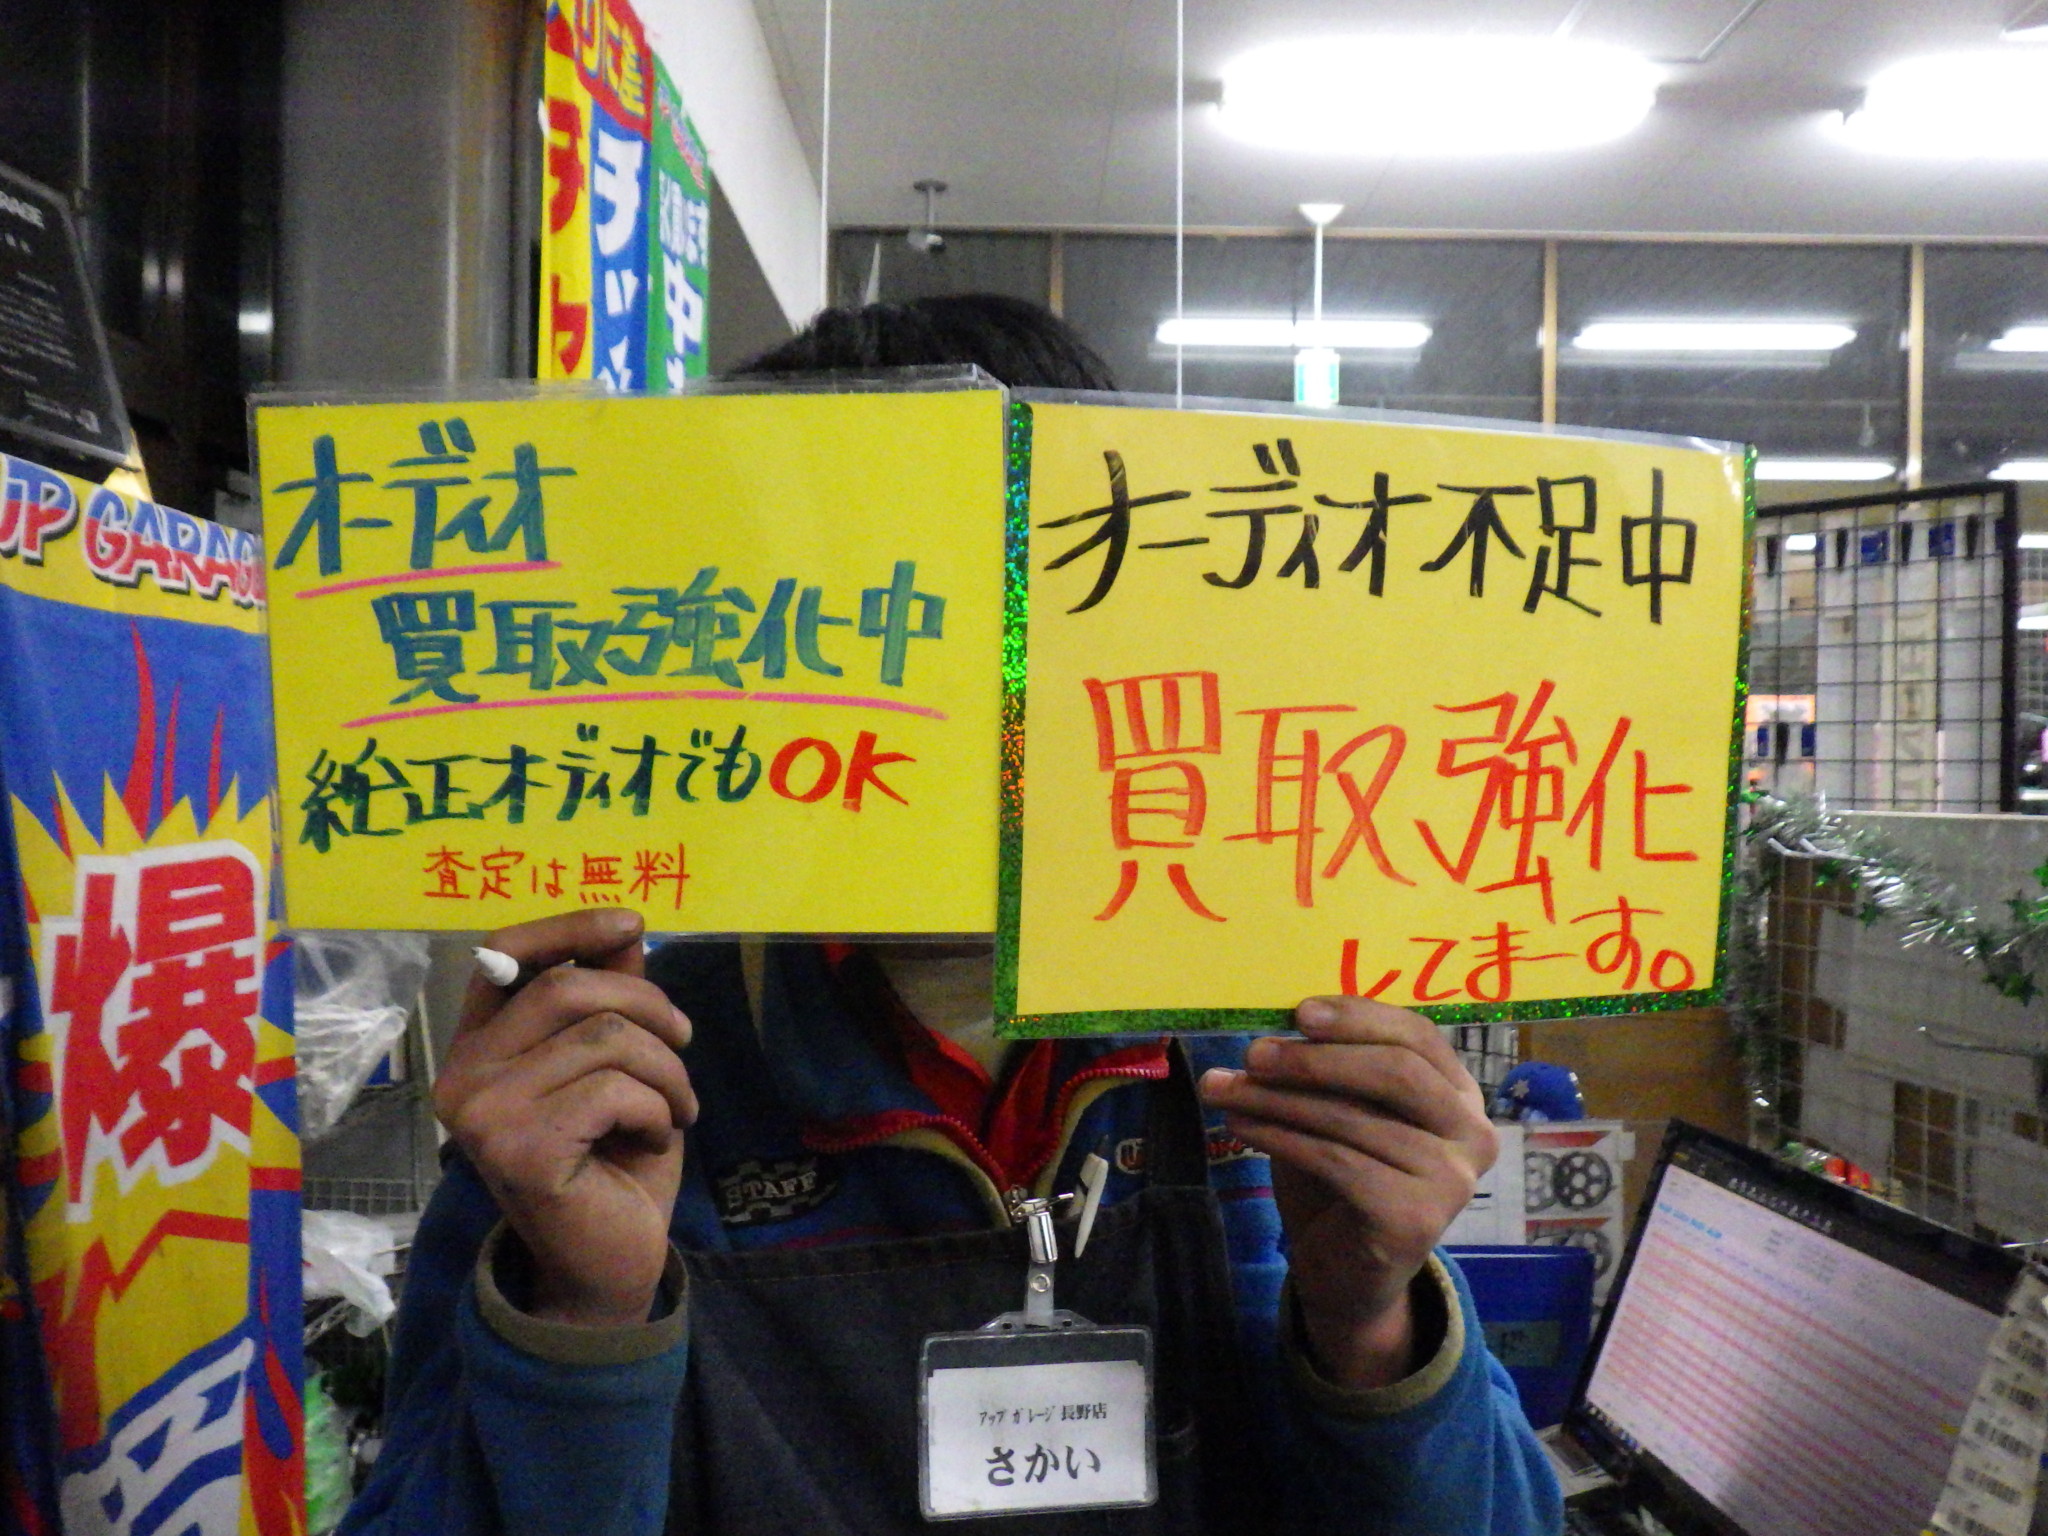 オーディオ
買取強化中
純正オーディオでもOK
査定は無料
オーディオ不足中
買取強化
してまーす。
UP GARAGE
爆
STAFF
アップガレージ 長野店
さかい